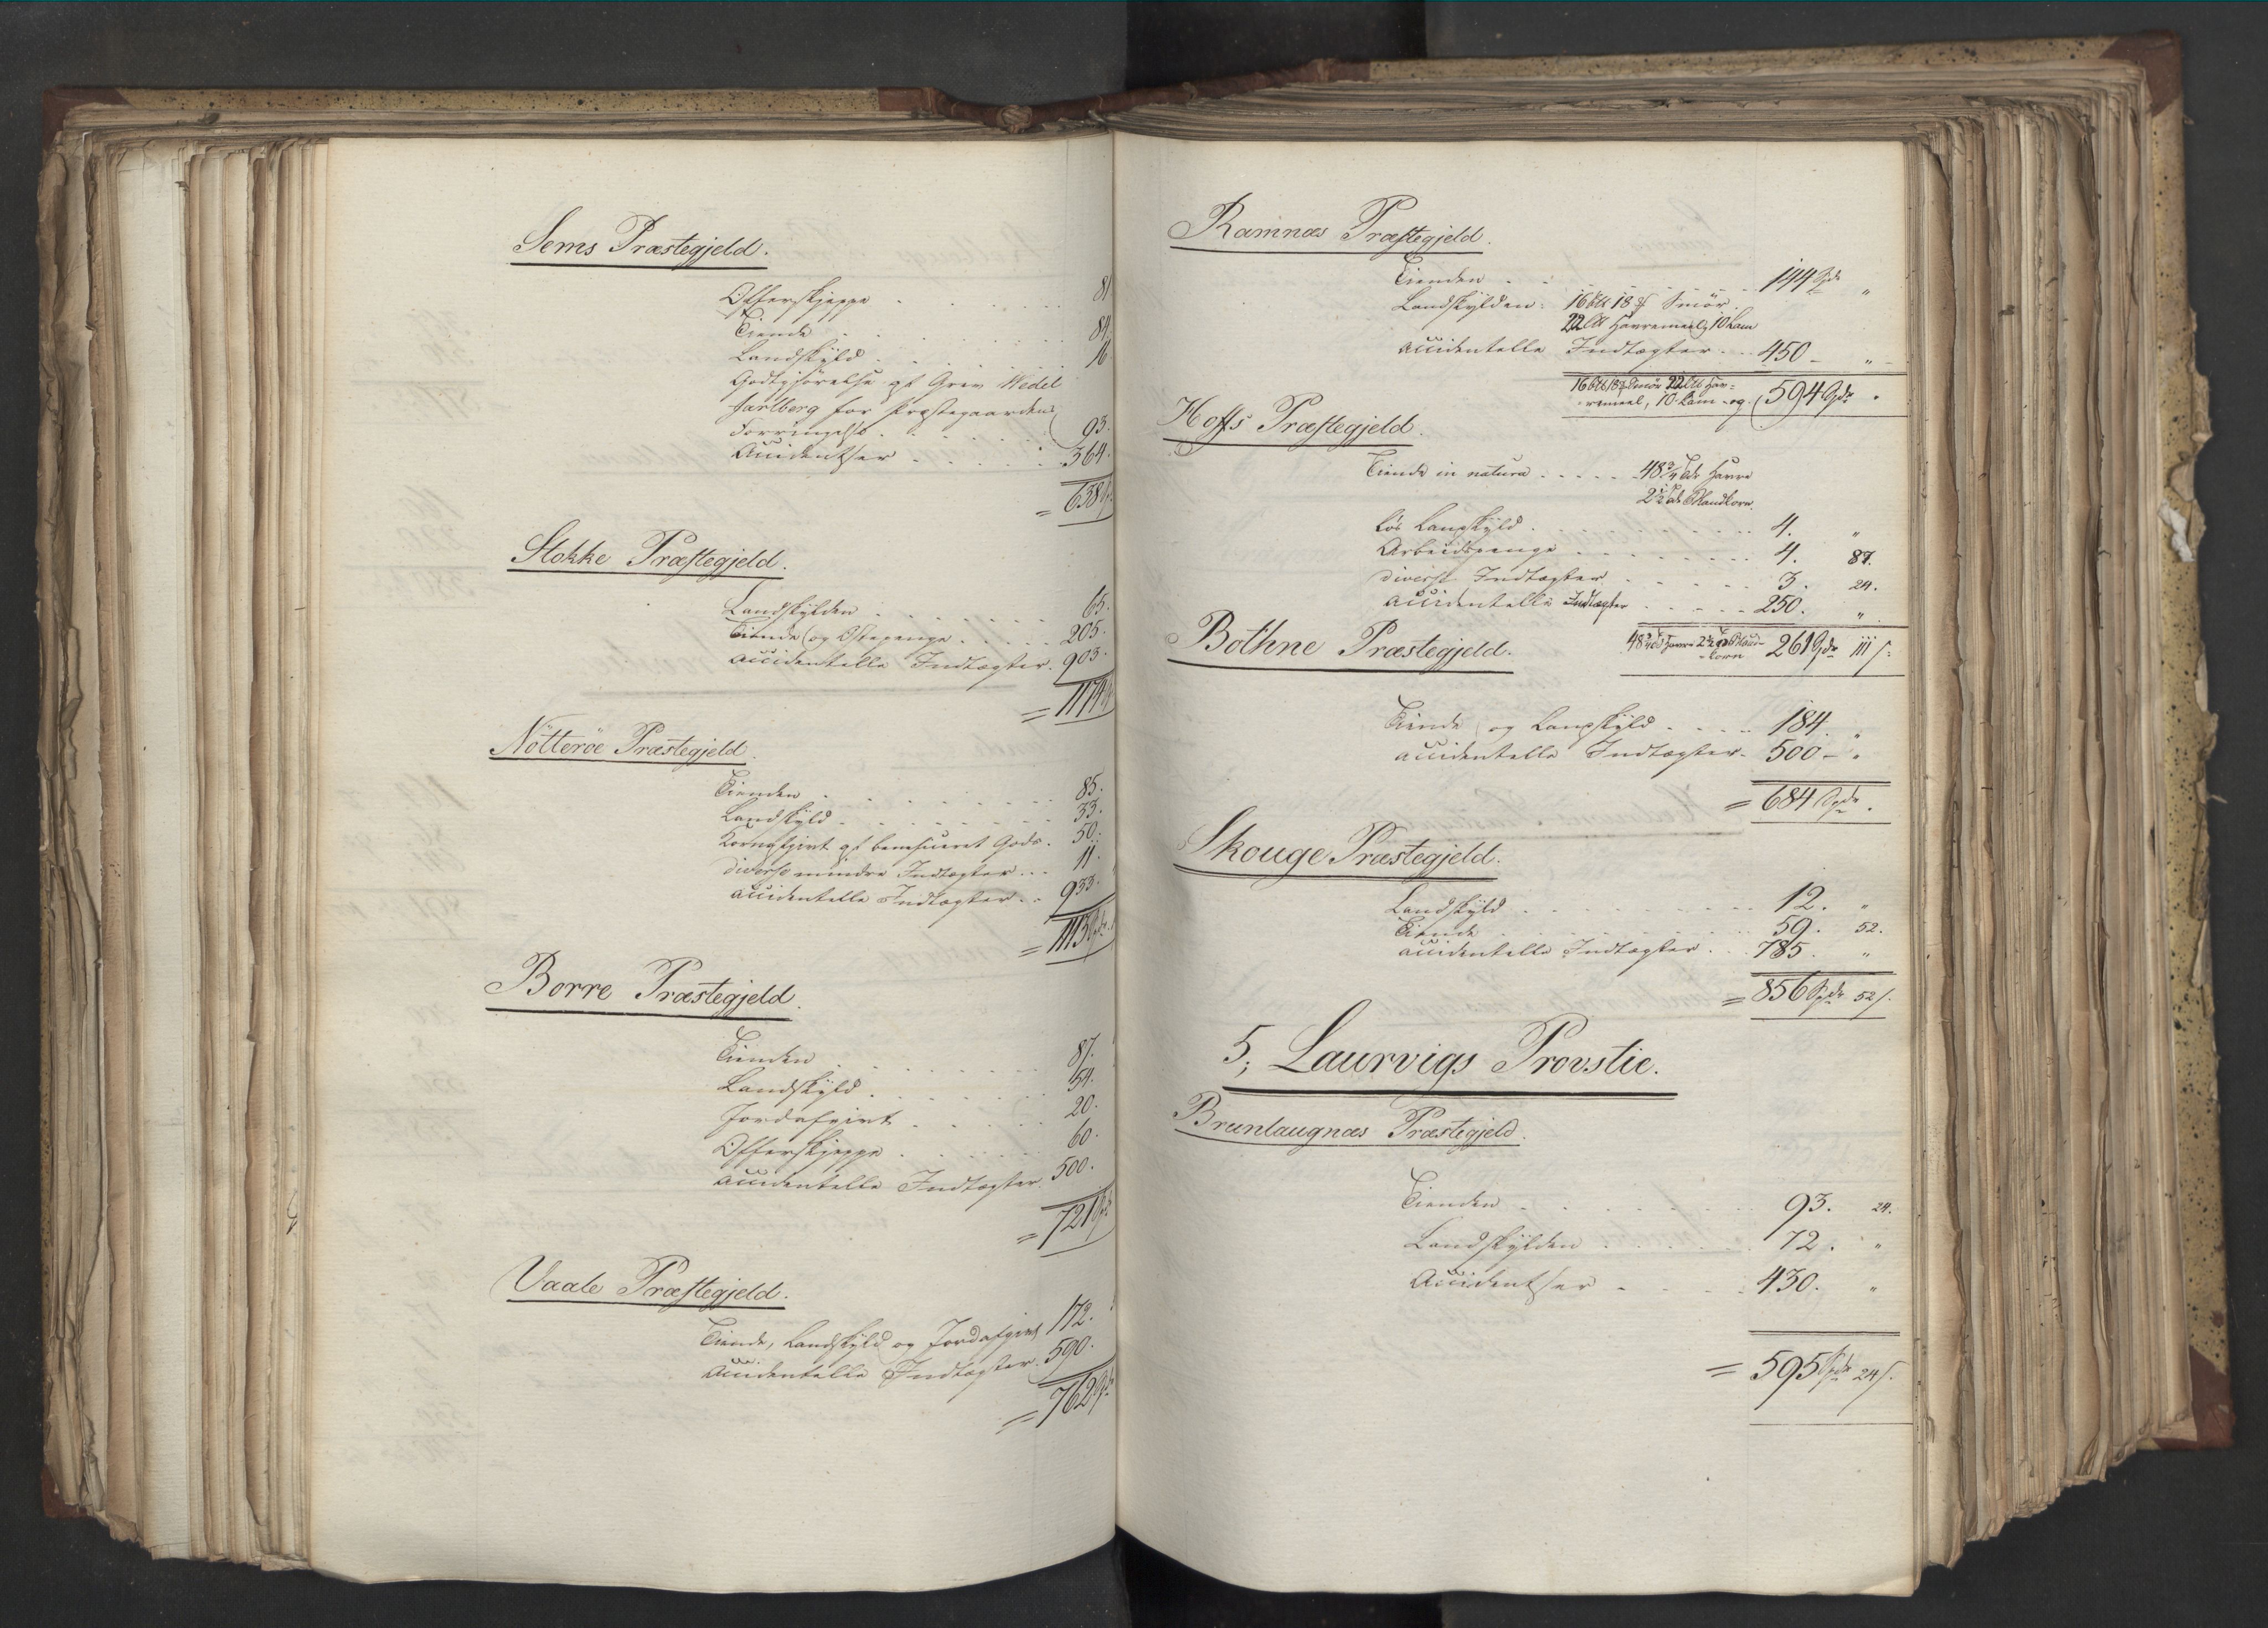 Sems Præstegjeld.
Offerskjeppe 81
Tiende 84.
Landskyld 16.
Godtgjørelse af Grev Wedel
Jarlsberg for Præstegaardens
Forringelse 93.
Accidentser 364.
= 638
Stokke Præstegjeld.
Landskylden 65.
Tiende og Ostepenge 205.
accidentelle Indtægter. 903.
= 1174
Nötteröe Præstegjeld.
Tienden 85.
Landskyld 33.
Kornafgivt af beneficeret Gods. 50.
diverse mindre Indtægter 11.
accidentelle Indtægter 933.
= 1113
Borre Præstegjeld.
Tienden 87.
Landskyld 54.
Jordafgivt 20.
Offerskjeppe 60.
accidentelle Indtægter. 500.
= 721
Vaale Præstegjeld.
Tiende, Landskyld og Jordafgivt 172.
Accidentelle Indtægter. 590.
= 762
Ramnæs Præstegjeld.
Tienden 144 Spdr "
Landskylden: 16 18 Smör
22 Havremeel, 10 Lam
accidentelle Indtægter 450 - "
16 18 Smör 22 Hav-
remeel, 10 Lam og 594 Spdr "
Hoffs Præstegjeld.
Tiende in natura 48 3/4 Tdr Havre
2 1/2 Tdr Blandkorn.
løs Landskyld 4. "
Arbeidspenge 4. 87.
diverse Indtægter 3. 24.
accidentelle Indtægter 250. "
48 3/4 Td Havre 2 1/2 Td Bland-
korn 261 Spdr 111 s.
Bothne Præstegjeld.
Tiende og Landskyld 184. "
accidentelle Indtægter. 500 - "
= 684 Spdr "
Skouge Præstegjeld.
Landskyld 12. "
Tiende 59. 52.
accidentelle Indtægter 785. "
= 856 Spdr 52 s.
5, Laurvigs Provstie.
Brunlaugnæs Præstegjeld.
Tienden 93. 24.
Landskylden 72. "
Accidentser 430. "
= 595 Spdr 24 s.